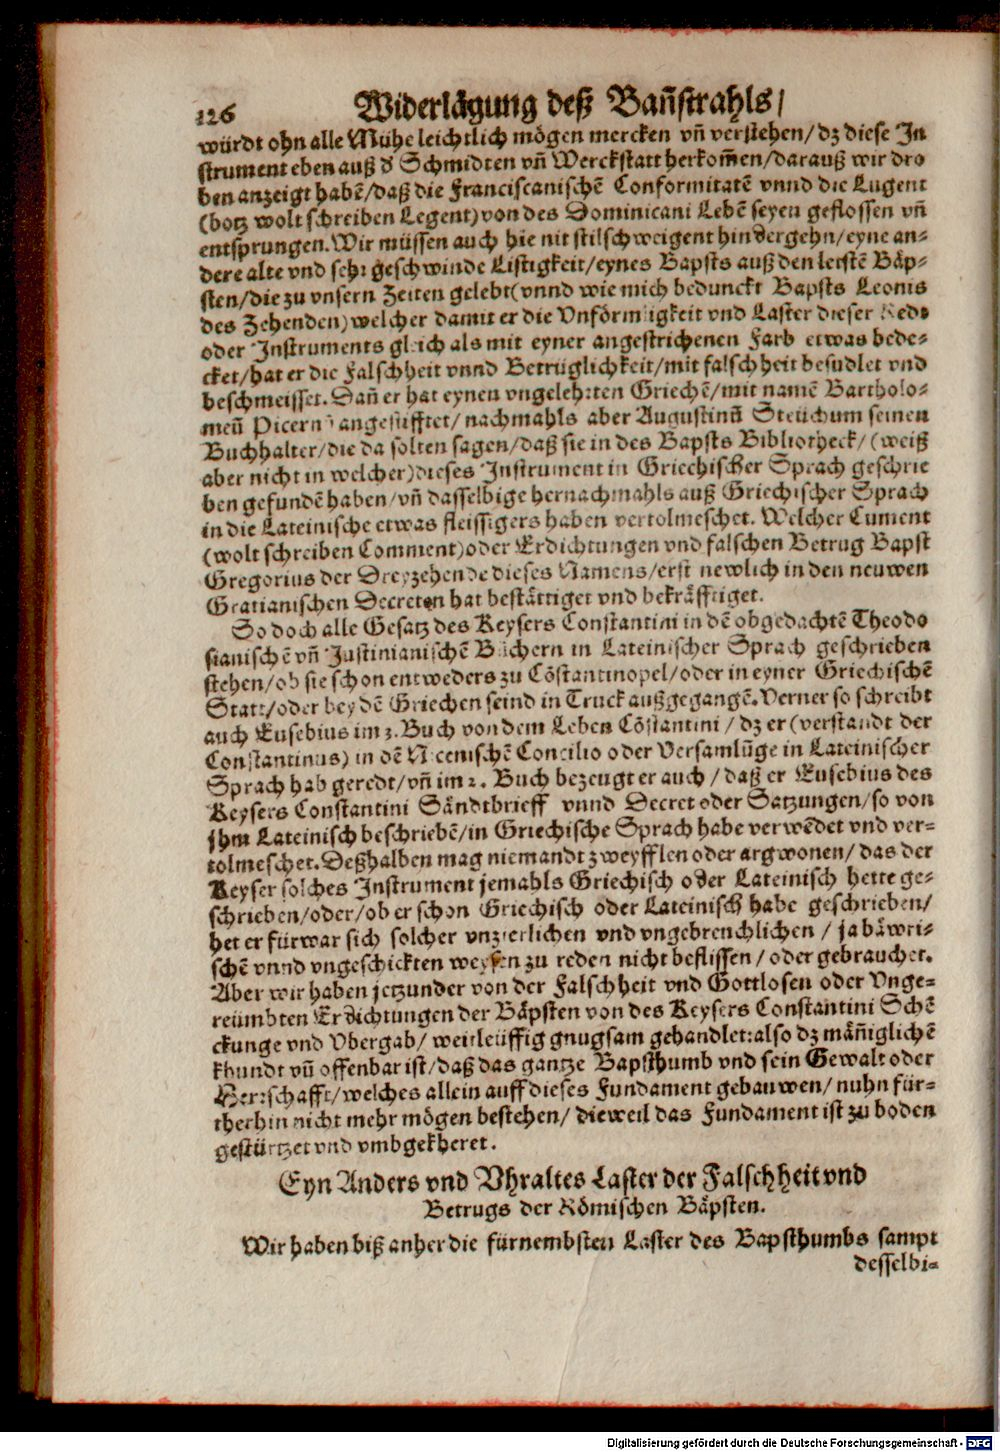 126 Widerlägung deß Bañstrahls/
würdt ohn alle Mühe leichtlich mögen mercken vñ verstehen/dz diese In
strument eben auß d̛ Schmidten vñ Werckstatt herkom̃en/darauß wir dro
ben anzeigt habẽ/daß die Franciscanischẽ Conformitatẽ vnnd die Lugent
(botz wolt schreiben Legent) von des Dominicani Lebẽ seyen geflossen vñ
entsprungen. Wir müssen auch hie nit stilschweigent hindergehn/eyne an-
dere alte vnd sehr geschwinde Listigkeit/eynes Bapsts auß den letstẽ Bäp-
sten/die zu vnsern Zeiten gelebt(vnnd wie mich bedunckt Bapsts Leonis
des Zehenden) welcher damit er die Vnförmigkeit vnd Laster dieser Rede
oder Instruments gleich als mit eyner angestrichenen Farb etwas bede-
cket/hat er die Falschheit vnnd Betrüglichkeit/mit falschheit besudlet vnd
beschmeisset. Dañ er hat eynen vngelehrten Griechẽ/mit namẽ Bartholo-
meũ Picernũ angestifftet/nachmahls aber Augustinũ Steuchum seinen
Buchhalter/die da solten sagen/daß sie in des Bapsts Bibliotheck/(weiß
aber nicht in welcher)dieses Instrument in Griechischer Sprach geschrie
ben gefundẽ haben/vñ dasselbige hernachmahls auß Griechischer Sprach
in die Lateinische etwas fleissigers haben vertolmeschet. Welcher Cument
(wolt schreiben Comment) oder Erdichtungen vnd falschen Betrug Bapst
Gregorius der Dreyzehende dieses Namens/erst newlich in den neuwen
Gratianischen Decreten hat bestättiget vnd bekräfftiget.
So doch alle Gesatz des Keysers Constantini in dẽ obgedachtẽ Theodo
sianischẽ vñ Justinianischẽ Büchern in Lateinischer Sprach geschrieben
stehen/ob sie schon entweders zu Cõstantinopel/oder in eyner Griechischẽ
Statt/oder bey dẽ Griechen seind in Truck außgegangẽ. Verner so schreibt
auch Eusebius im 3. Buch von dem Leben Cõstantini/dz er (verstandt der
Constantinus) in dẽ Nicenischẽ Concilio oder Versamlũge in Lateinischer
Sprach hab geredt/vñ im 2. Buch bezeugt er auch/daß er Eusebius des
Keysers Constantini Sändtbrieff vnnd Decret oder Satzungen/so von
jhm Lateinisch beschriebẽ/in Griechische Sprach habe verwẽdet vnd ver-
tolmeschet. Deßhalben mag niemandt zweyfflen oder argwonen/das der
Keyser solches Instrument jemahls Griechisch oder Lateinisch hette ge-
schrieben/oder/ob er schon Griechisch oder Lateinisch habe geschrieben/
het er fürwar sich solcher vnzierlichen vnd vngebreuchlichen/ja bäwri-
schẽ vnnd vngeschickten weysen zu reden nicht beflissen/oder gebrauchet.
Aber wir haben jetzunder von der Falschheit vnd Gottlosen oder Vnge-
reümbten Erdichtungen der Bäpsten von des Keysers Constantini Schẽ
ckunge vnd Vbergab/weitleüffig gnugsam gehandlet: also dz mäñiglichẽ
khundt vñ offenbar ist/daß das gantze Bapsthumb vnd sein Gewalt oder
Herrschafft/welches allein auff dieses Fundament gebauwen/nuhn für-
therhin nicht mehr mögen bestehen/dieweil das Fundament ist zu boden
gestürtzet vnd vmbgekheret.
Eyn Anders vnd Vhraltes Laster der Falschheit vnd
Betrugs der Römischen Bäpsten.
Wir haben biß anher die fürnembsten Laster des Bapsthumbs sampt
desselbi-
Digitalisierung gefördert durch die Deutsche Forschungsgemeinschaft - DFG